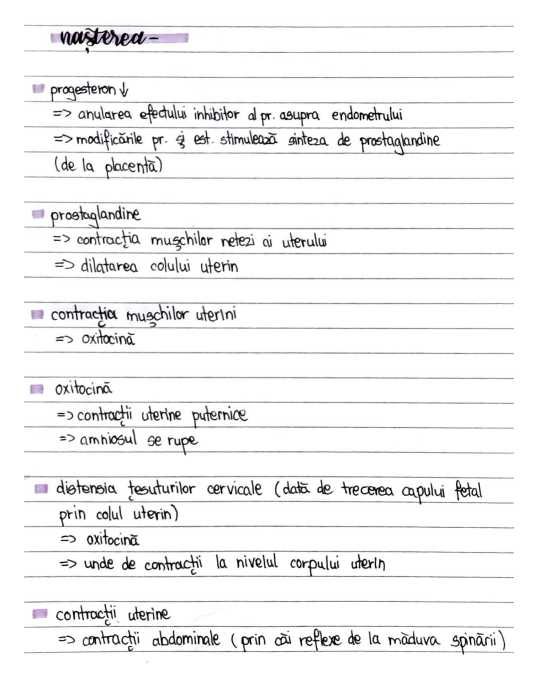 nașterea -
progesteron ↓
=> anularea efectului inhibitor al pr. asupra endometrului
=> modificările pr. și est. stimulează sinteza de prostaglandine
(de la placentă)
prostaglandine
=> contracția mușchilor netezi ai uterului
=> dilatarea colului uterin
contracția mușchilor uterini
=> oxitocină
oxitocină
=> contracții uterine puternice
=> amniosul se rupe
distensia țesuturilor cervicale (dată de trecerea capului fetal
prin colul uterin)
=> oxitocină
=> unde de contracții la nivelul corpului uterin
contracții uterine
=> contracții abdominale (prin căi reflexe de la măduva spinării)